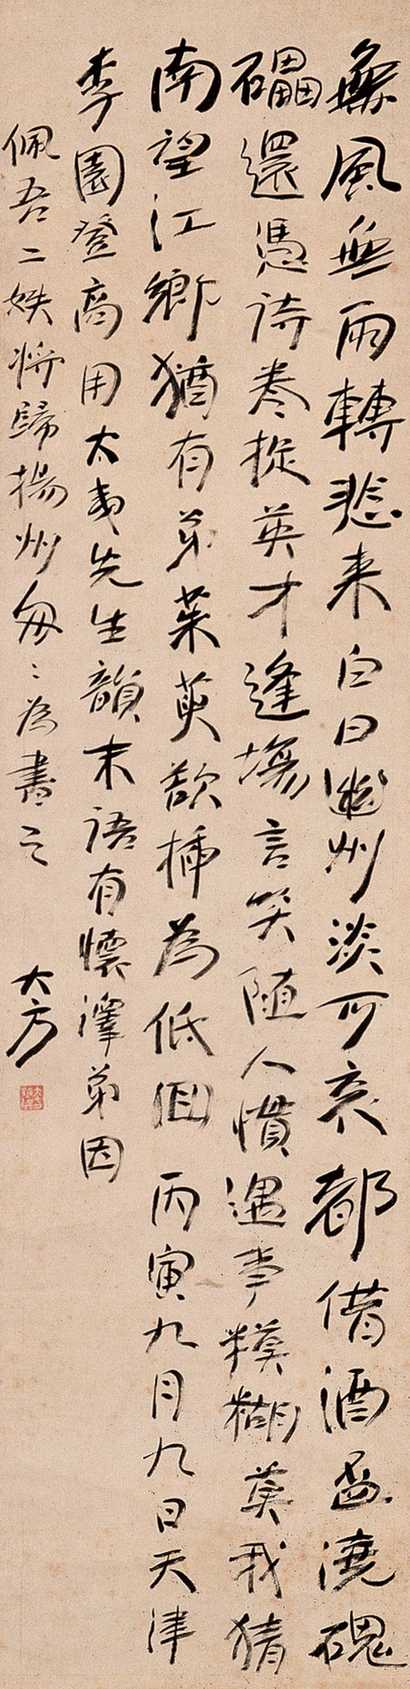 無風無雨轉悲来白日幽州淡可哀都借酒杯澆磈
礧還憑詩卷捉英才逢場言笑随人慣遇事糢糊莫我猜
南望江鄉猶有弟茱萸欲插為低徊 丙寅九月九日天津
李園登高用太夷先生韻末語有懷澤弟因
佩吾二姪將歸揚州匆匆為書之 大方